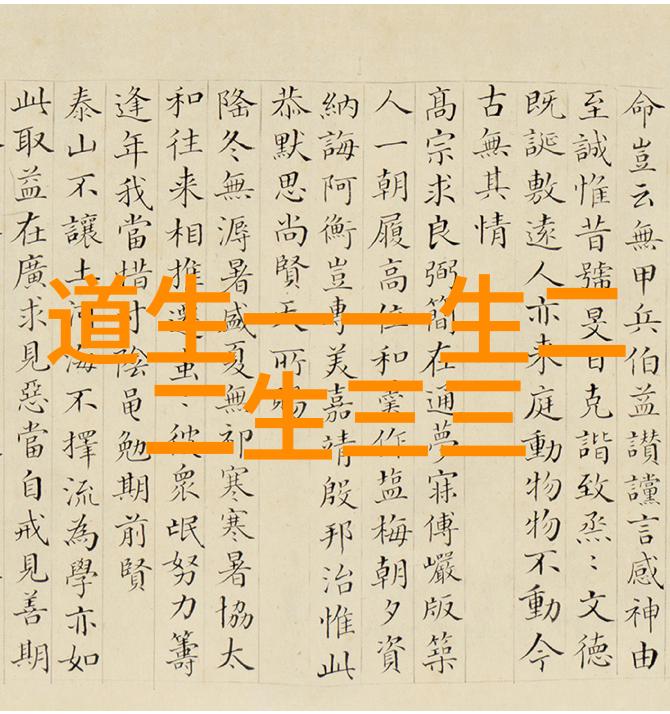 命豈云無甲兵伯益讃讜言感神由
至誠惟昔號旻日克諧致烝〻文德
既誕敷遠人亦来庭動物物不動今
古無其情
高宗求良弼簡在通夢寐傅巖版築
人一朝履高位和羹作塩梅朝夕資
納誨阿衡豈專美嘉靖殷邦治惟此
恭默思尚賢天所賜
隆冬無溽暑盛夏無祁寒寒暑協太
和往来相推遷蚩〻彼衆氓努力籌
逢年我當惜寸陰黽勉期前賢
泰山不讓土河海不擇流為學亦如
此取益在廣求見惡當自戒見善期
道生一一生二
二生三三